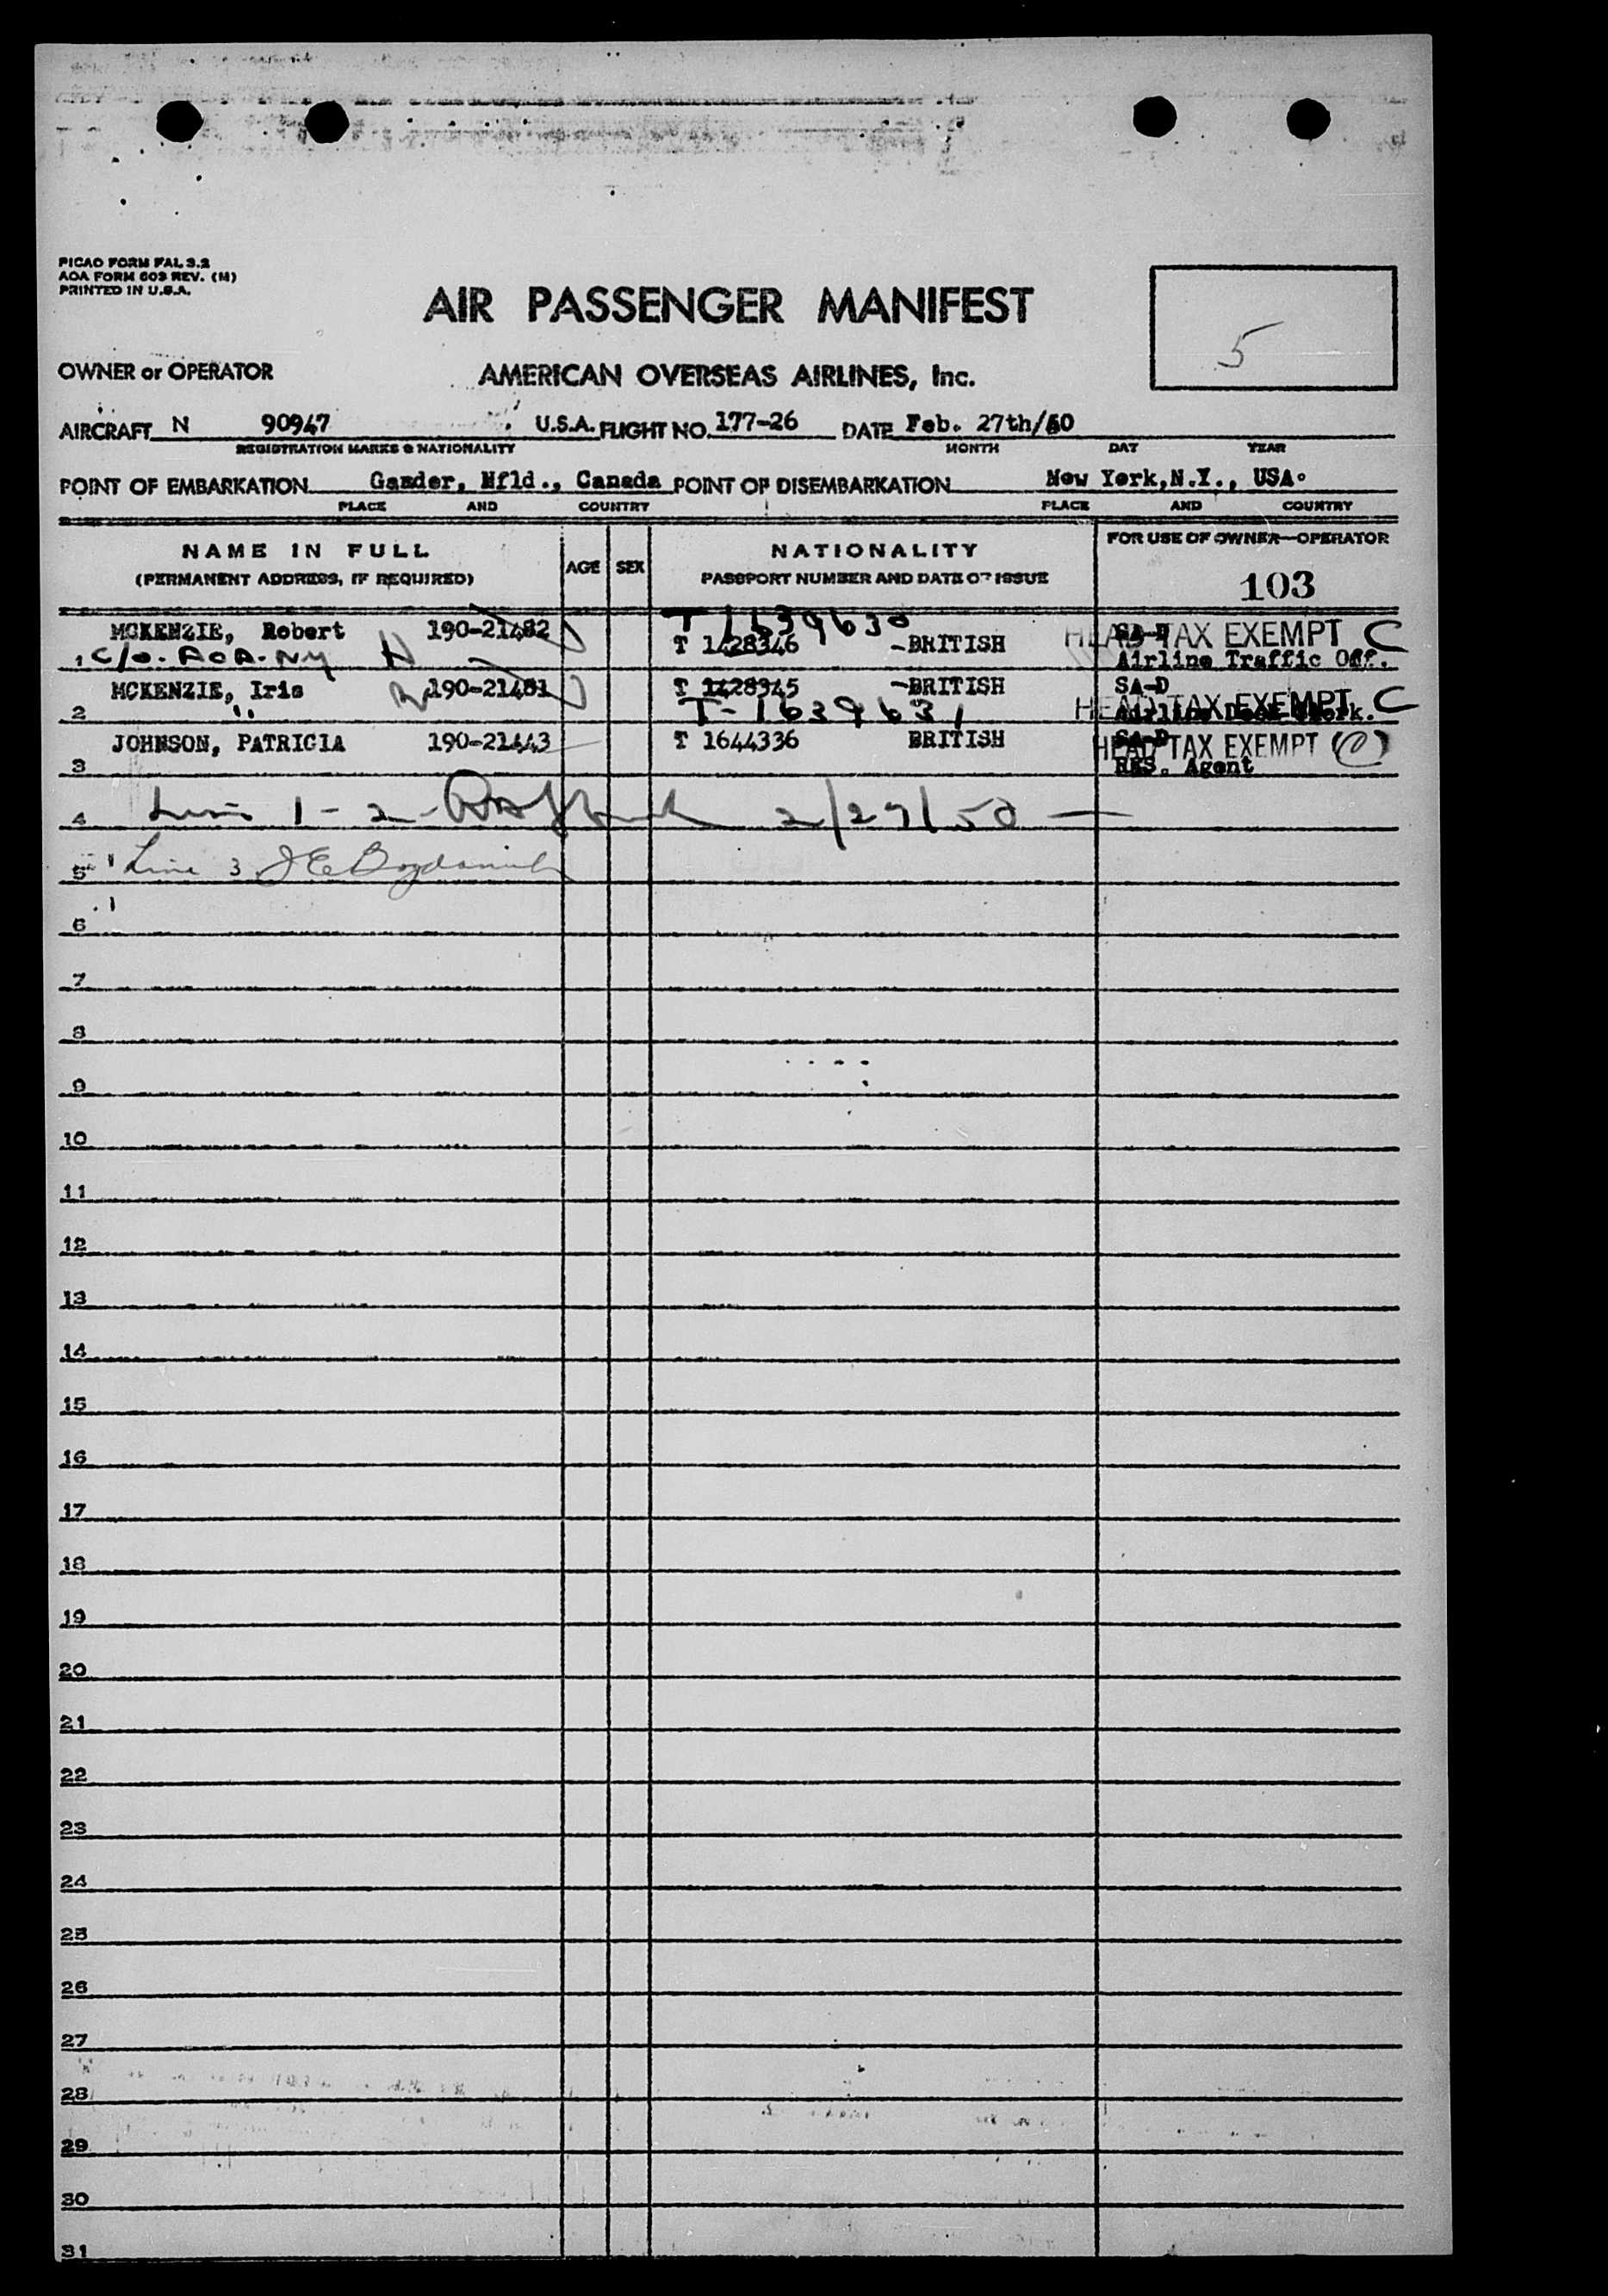 PICAO FORM FAL 3.2
AOA FORM 603 REV. (M)
PRINTED IN U.S.A.
AIR PASSENGER MANIFEST
5
OWNER or OPERATOR AMERICAN OVERSEAS AIRLINES, Inc.
AIRCRAFT N 90947 U.S.A. FLIGHT NO. 177-26 DATE Feb. 27th/50
REGISTRATION MARKS & NATIONALITY MONTH DAY YEAR
POINT OF EMBARKATION Gander, Nfld., Canada POINT OF DISEMBARKATION New York, N.Y., USA.
PLACE AND COUNTRY PLACE AND COUNTRY
NAME IN FULL AGE SEX NATIONALITY FOR USE OF OWNER—OPERATOR
(PERMANENT ADDRESS, IF REQUIRED) PASSPORT NUMBER AND DATE OF ISSUE 103
T 1639630
MCKENZIE, Robert 190-21482 T 1428346 -BRITISH SA-D HEAD TAX EXEMPT C
1 C/O. AOA. NY Airline Traffic Off.
MCKENZIE, Iris 190-21481 T 1428345 -BRITISH SA-D
2 " T-1639631 HEAD TAX EXEMPT C
JOHNSON, PATRICIA 190-21443 T 1644336 BRITISH SA-D HEAD TAX EXEMPT (C)
3 RES. Agent
4 Lines 1-2 2/27/50
5 Line 3
6
7
8
9
10
11
12
13
14
15
16
17
18
19
20
21
22
23
24
25
26
27
28
29
30
31